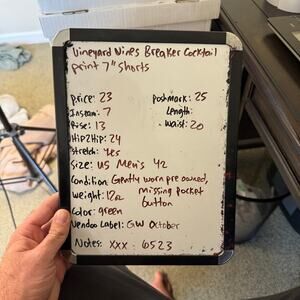 Vineyard Vines Breaker Cocktail
print 7" shorts
Price: 23
Poshmark: 25
Inseam: 7
Length:
Rise: 13
Waist: 20
Hip2Hip: 24
Stretch: yes
Size: US Men's 42
Condition: Gently worn pre owned,
missing pocket
button
Weight: 12oz
Color: green
Vendoo Label: GW October
Notes: XXX - 6523